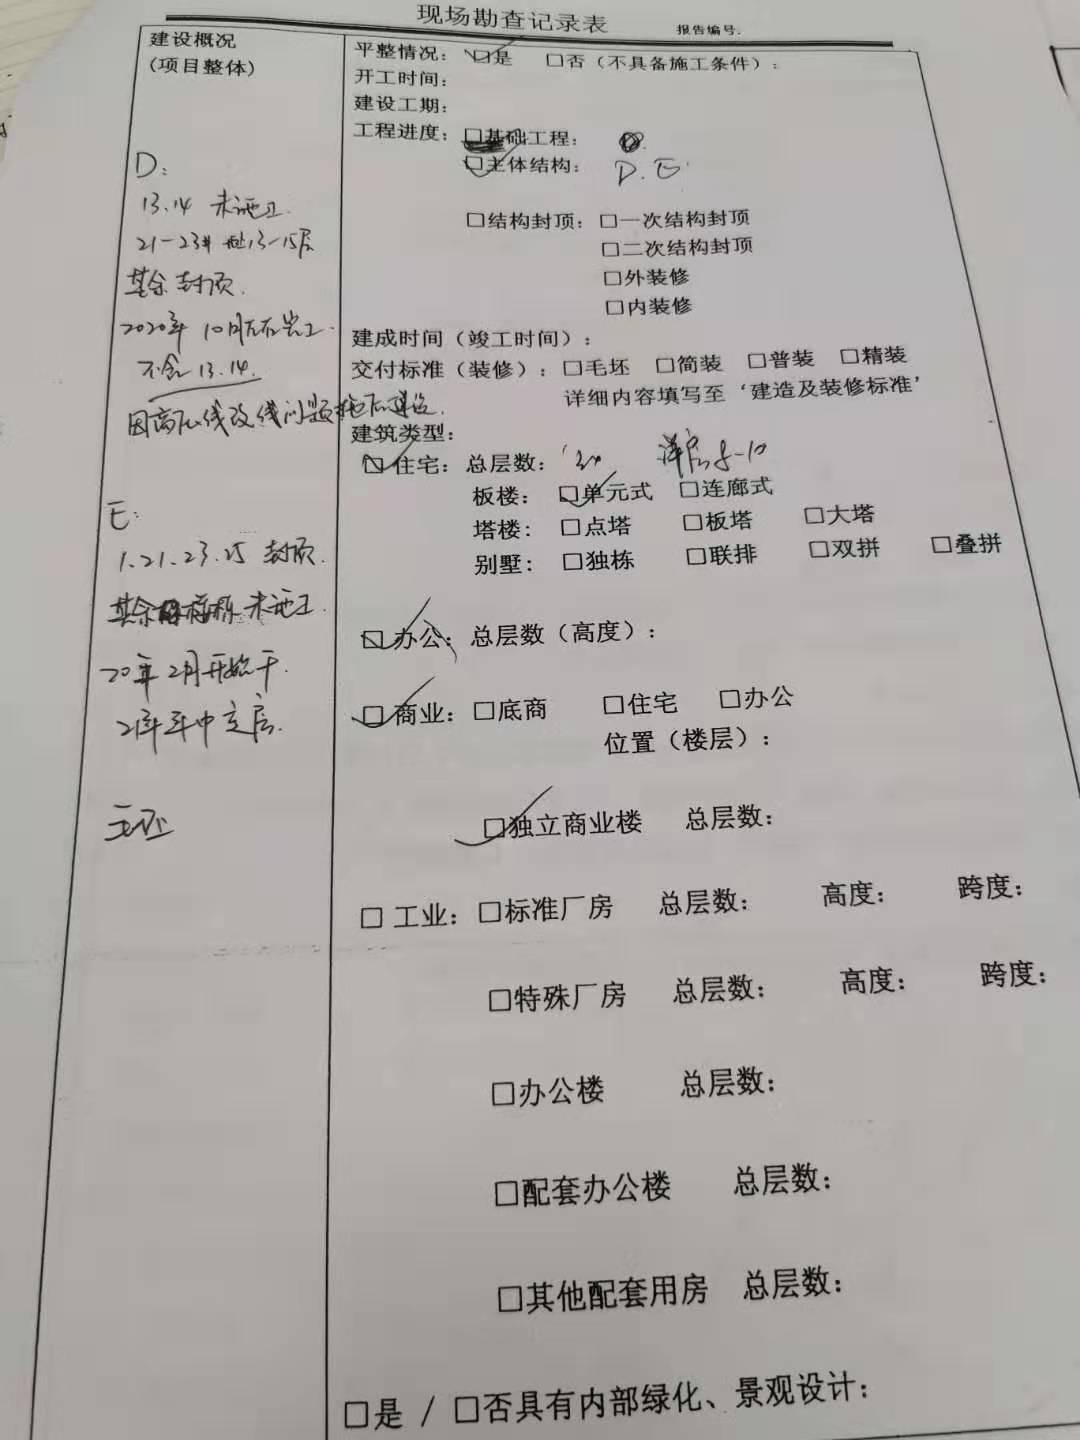 现场勘查记录表 报告编号.
建设概况
(项目整体)
D:
13.14 未施工.
21-23# 13-15层
其余封顶.
2020年10月左右完工.
不含13.14.
因高压线改线问题
E:
1.21.23.25 封顶.
其余 未施工.
20年2月开始干.
21年年中交房.
毛坯
平整情况: □是 □否(不具备施工条件):
开工时间:
建设工期:
工程进度: □基础工程:
□主体结构: D.E.
□结构封顶: □一次结构封顶
□二次结构封顶
□外装修
□内装修
建成时间(竣工时间):
交付标准(装修): □毛坯 □简装 □普装 □精装
详细内容填写至‘建造及装修标准’
建筑类型:
□住宅: 总层数: 30 洋房8-10
板楼: □单元式 □连廊式
塔楼: □点塔 □板塔 □大塔
别墅: □独栋 □联排 □双拼 □叠拼
□办公: 总层数(高度):
□商业: □底商 □住宅 □办公
位置(楼层):
□独立商业楼 总层数:
□工业: □标准厂房 总层数: 高度: 跨度:
□特殊厂房 总层数: 高度: 跨度:
□办公楼 总层数:
□配套办公楼 总层数:
□其他配套用房 总层数:
□是 / □否具有内部绿化、景观设计: